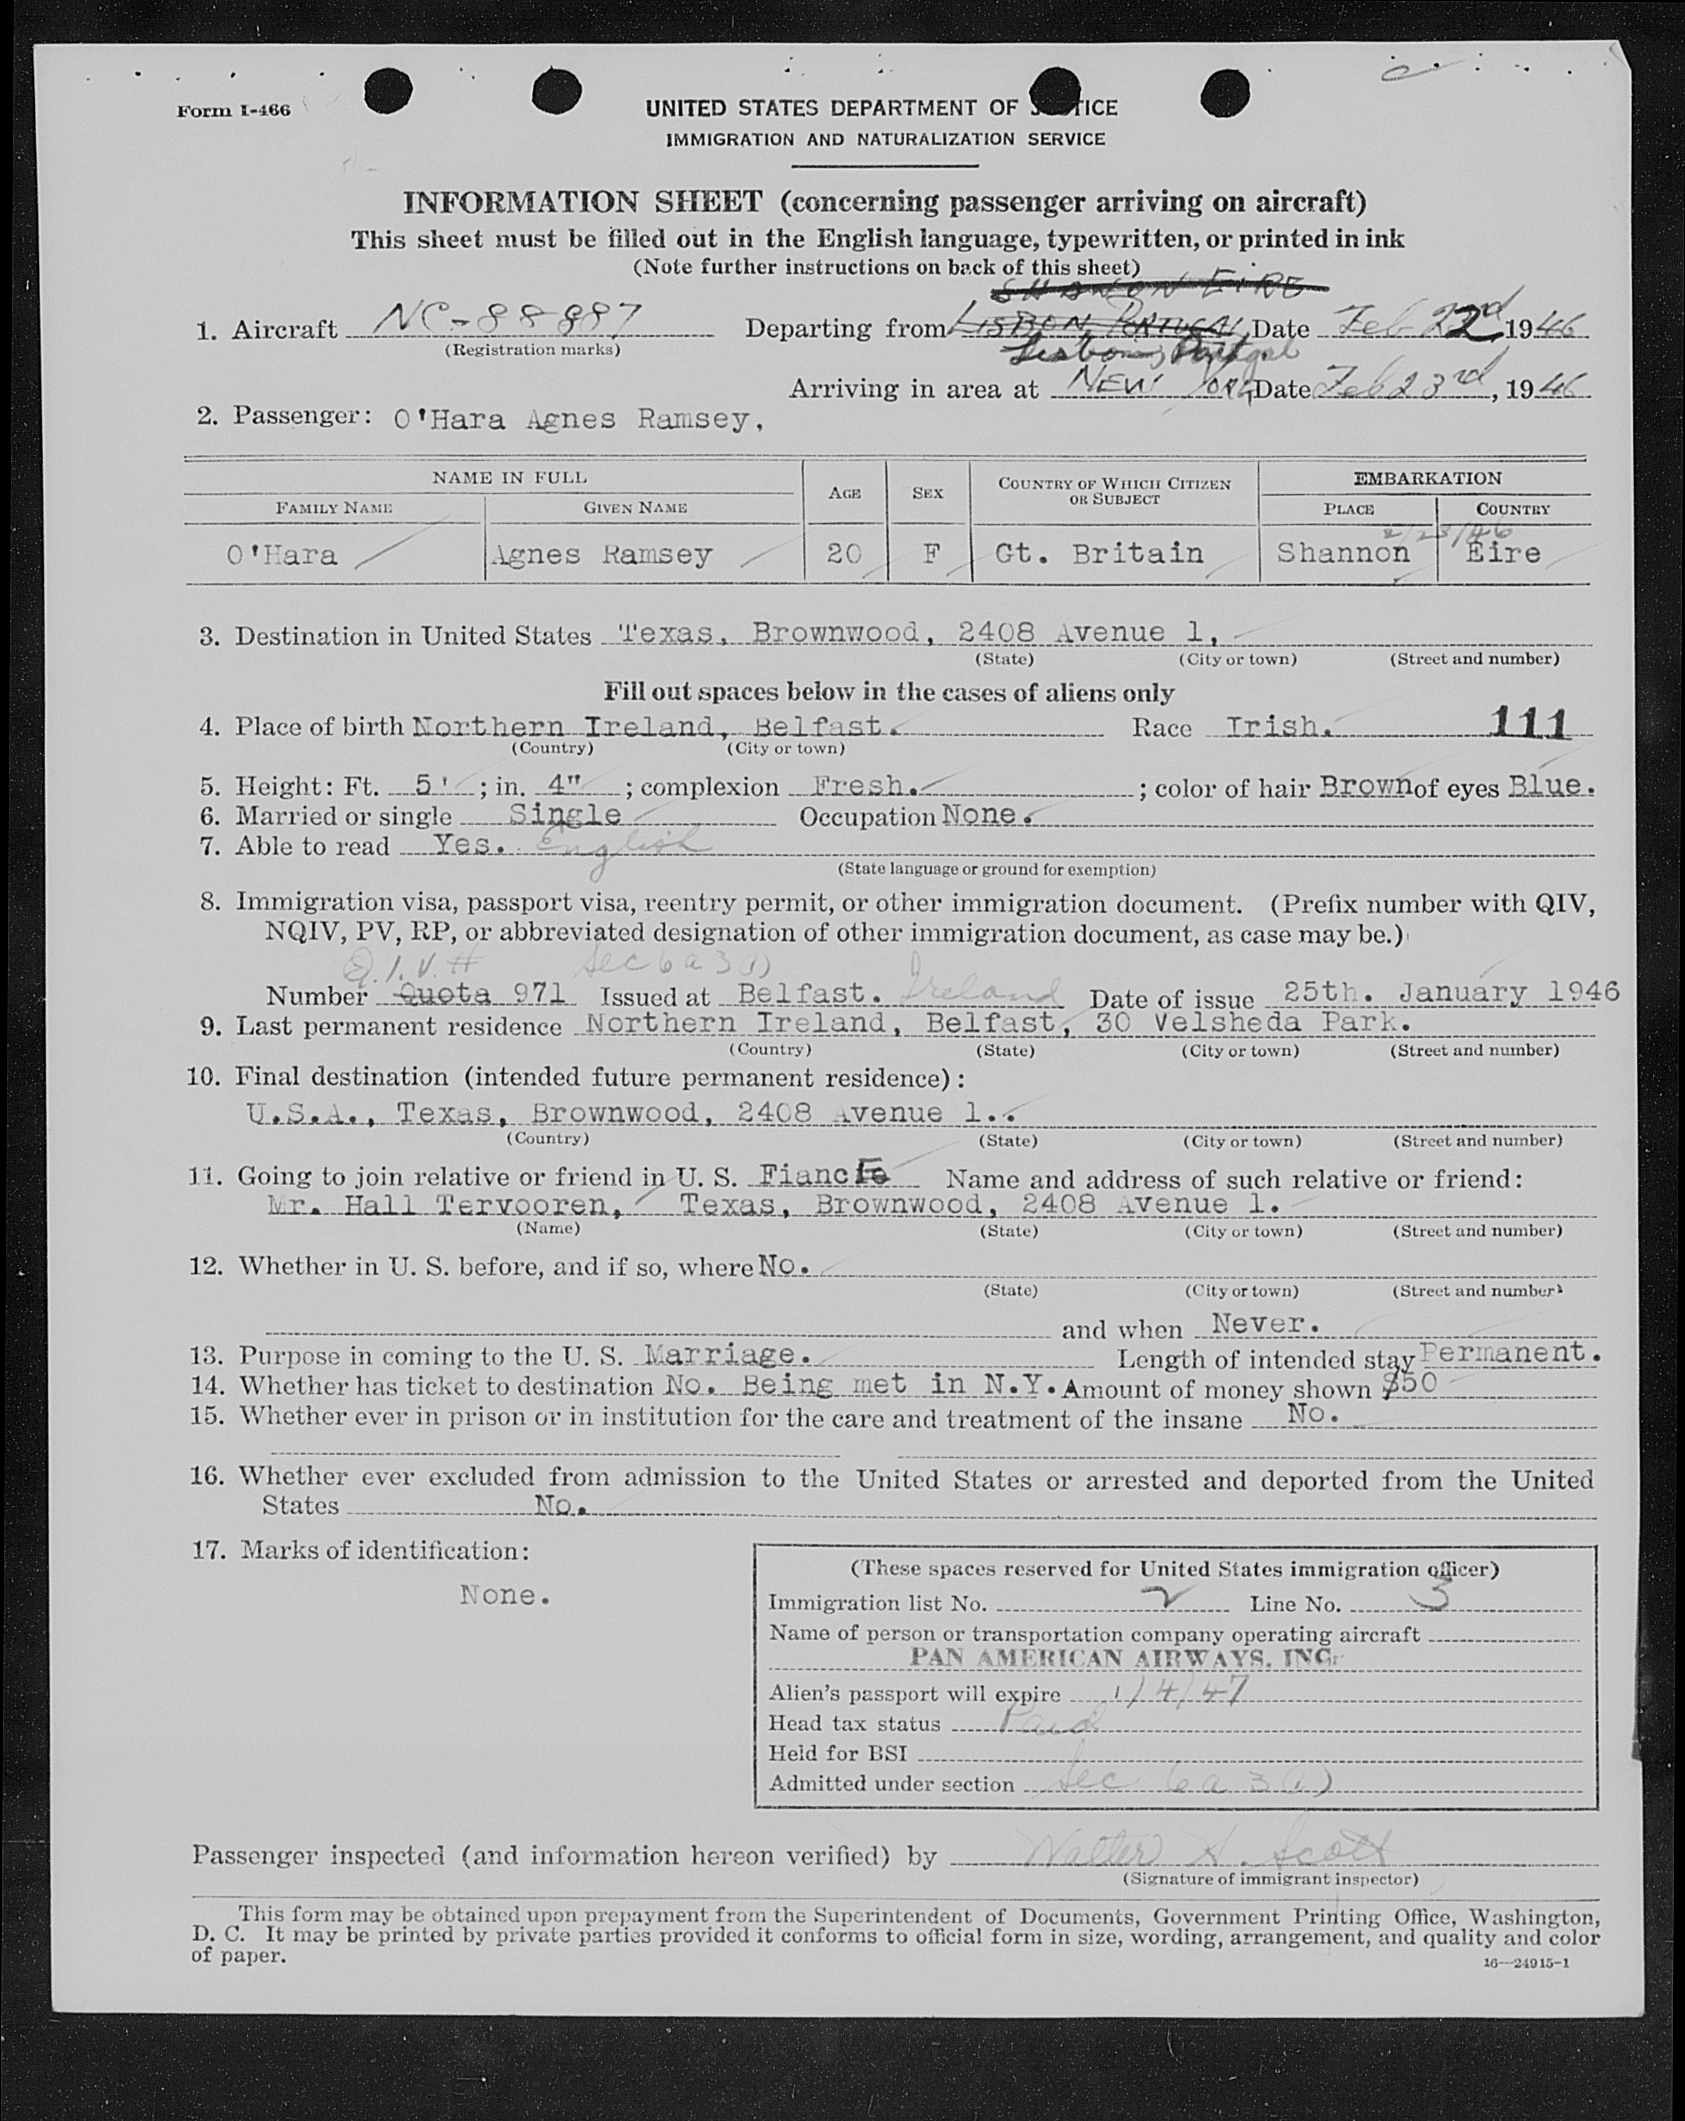 Form I-466
UNITED STATES DEPARTMENT OF JUSTICE
IMMIGRATION AND NATURALIZATION SERVICE
INFORMATION SHEET (concerning passenger arriving on aircraft)
This sheet must be filled out in the English language, typewritten, or printed in ink
(Note further instructions on back of this sheet)
SHANON EIRE
1. Aircraft NC-88887 Departing from LISBON, PORTUGAL Date Feb 22nd, 1946
(Registration marks) Lisbon, Portugal
Arriving in area at NEW YORK Date Feb 23rd, 1946
2. Passenger: O'Hara Agnes Ramsey,
NAME IN FULL AGE SEX COUNTRY OF WHICH CITIZEN OR SUBJECT EMBARKATION
FAMILY NAME GIVEN NAME PLACE COUNTRY
2/23/46
O'Hara Agnes Ramsey 20 F Gt. Britain Shannon Eire
3. Destination in United States Texas, Brownwood, 2408 Avenue 1,
(State) (City or town) (Street and number)
Fill out spaces below in the cases of aliens only
4. Place of birth Northern Ireland, Belfast. Race Irish. 111
(Country) (City or town)
5. Height: Ft. 5' ; in. 4" ; complexion Fresh. ; color of hair Brown of eyes Blue.
6. Married or single Single Occupation None.
7. Able to read Yes. English
(State language or ground for exemption)
8. Immigration visa, passport visa, reentry permit, or other immigration document. (Prefix number with QIV,
NQIV, PV, RP, or abbreviated designation of other immigration document, as case may be.)
Q.I.V. # Sec 6 a 3 (1)
Number Quota 971 Issued at Belfast. Ireland Date of issue 25th. January 1946
9. Last permanent residence Northern Ireland, Belfast, 30 Velsheda Park.
(Country) (State) (City or town) (Street and number)
10. Final destination (intended future permanent residence):
U.S.A., Texas, Brownwood, 2408 Avenue 1..
(Country) (State) (City or town) (Street and number)
11. Going to join relative or friend in U. S. Fiance Name and address of such relative or friend:
Mr. Hall Tervooren, Texas, Brownwood, 2408 Avenue 1.
(Name) (State) (City or town) (Street and number)
12. Whether in U. S. before, and if so, where No.
(State) (City or town) (Street and number)
and when Never.
13. Purpose in coming to the U. S. Marriage. Length of intended stay Permanent.
14. Whether has ticket to destination No. Being met in N.Y. Amount of money shown $50
15. Whether ever in prison or in institution for the care and treatment of the insane No.
16. Whether ever excluded from admission to the United States or arrested and deported from the United
States No.
17. Marks of identification:
None.
(These spaces reserved for United States immigration officer)
Immigration list No. 2 Line No. 3
Name of person or transportation company operating aircraft
PAN AMERICAN AIRWAYS, INC.
Alien's passport will expire 1/4/47
Head tax status Paid
Held for BSI
Admitted under section Sec 6 a 3 (1)
Passenger inspected (and information hereon verified) by Walter H. Scott
(Signature of immigrant inspector)
This form may be obtained upon prepayment from the Superintendent of Documents, Government Printing Office, Washington,
D. C. It may be printed by private parties provided it conforms to official form in size, wording, arrangement, and quality and color
of paper.
16—24915-1